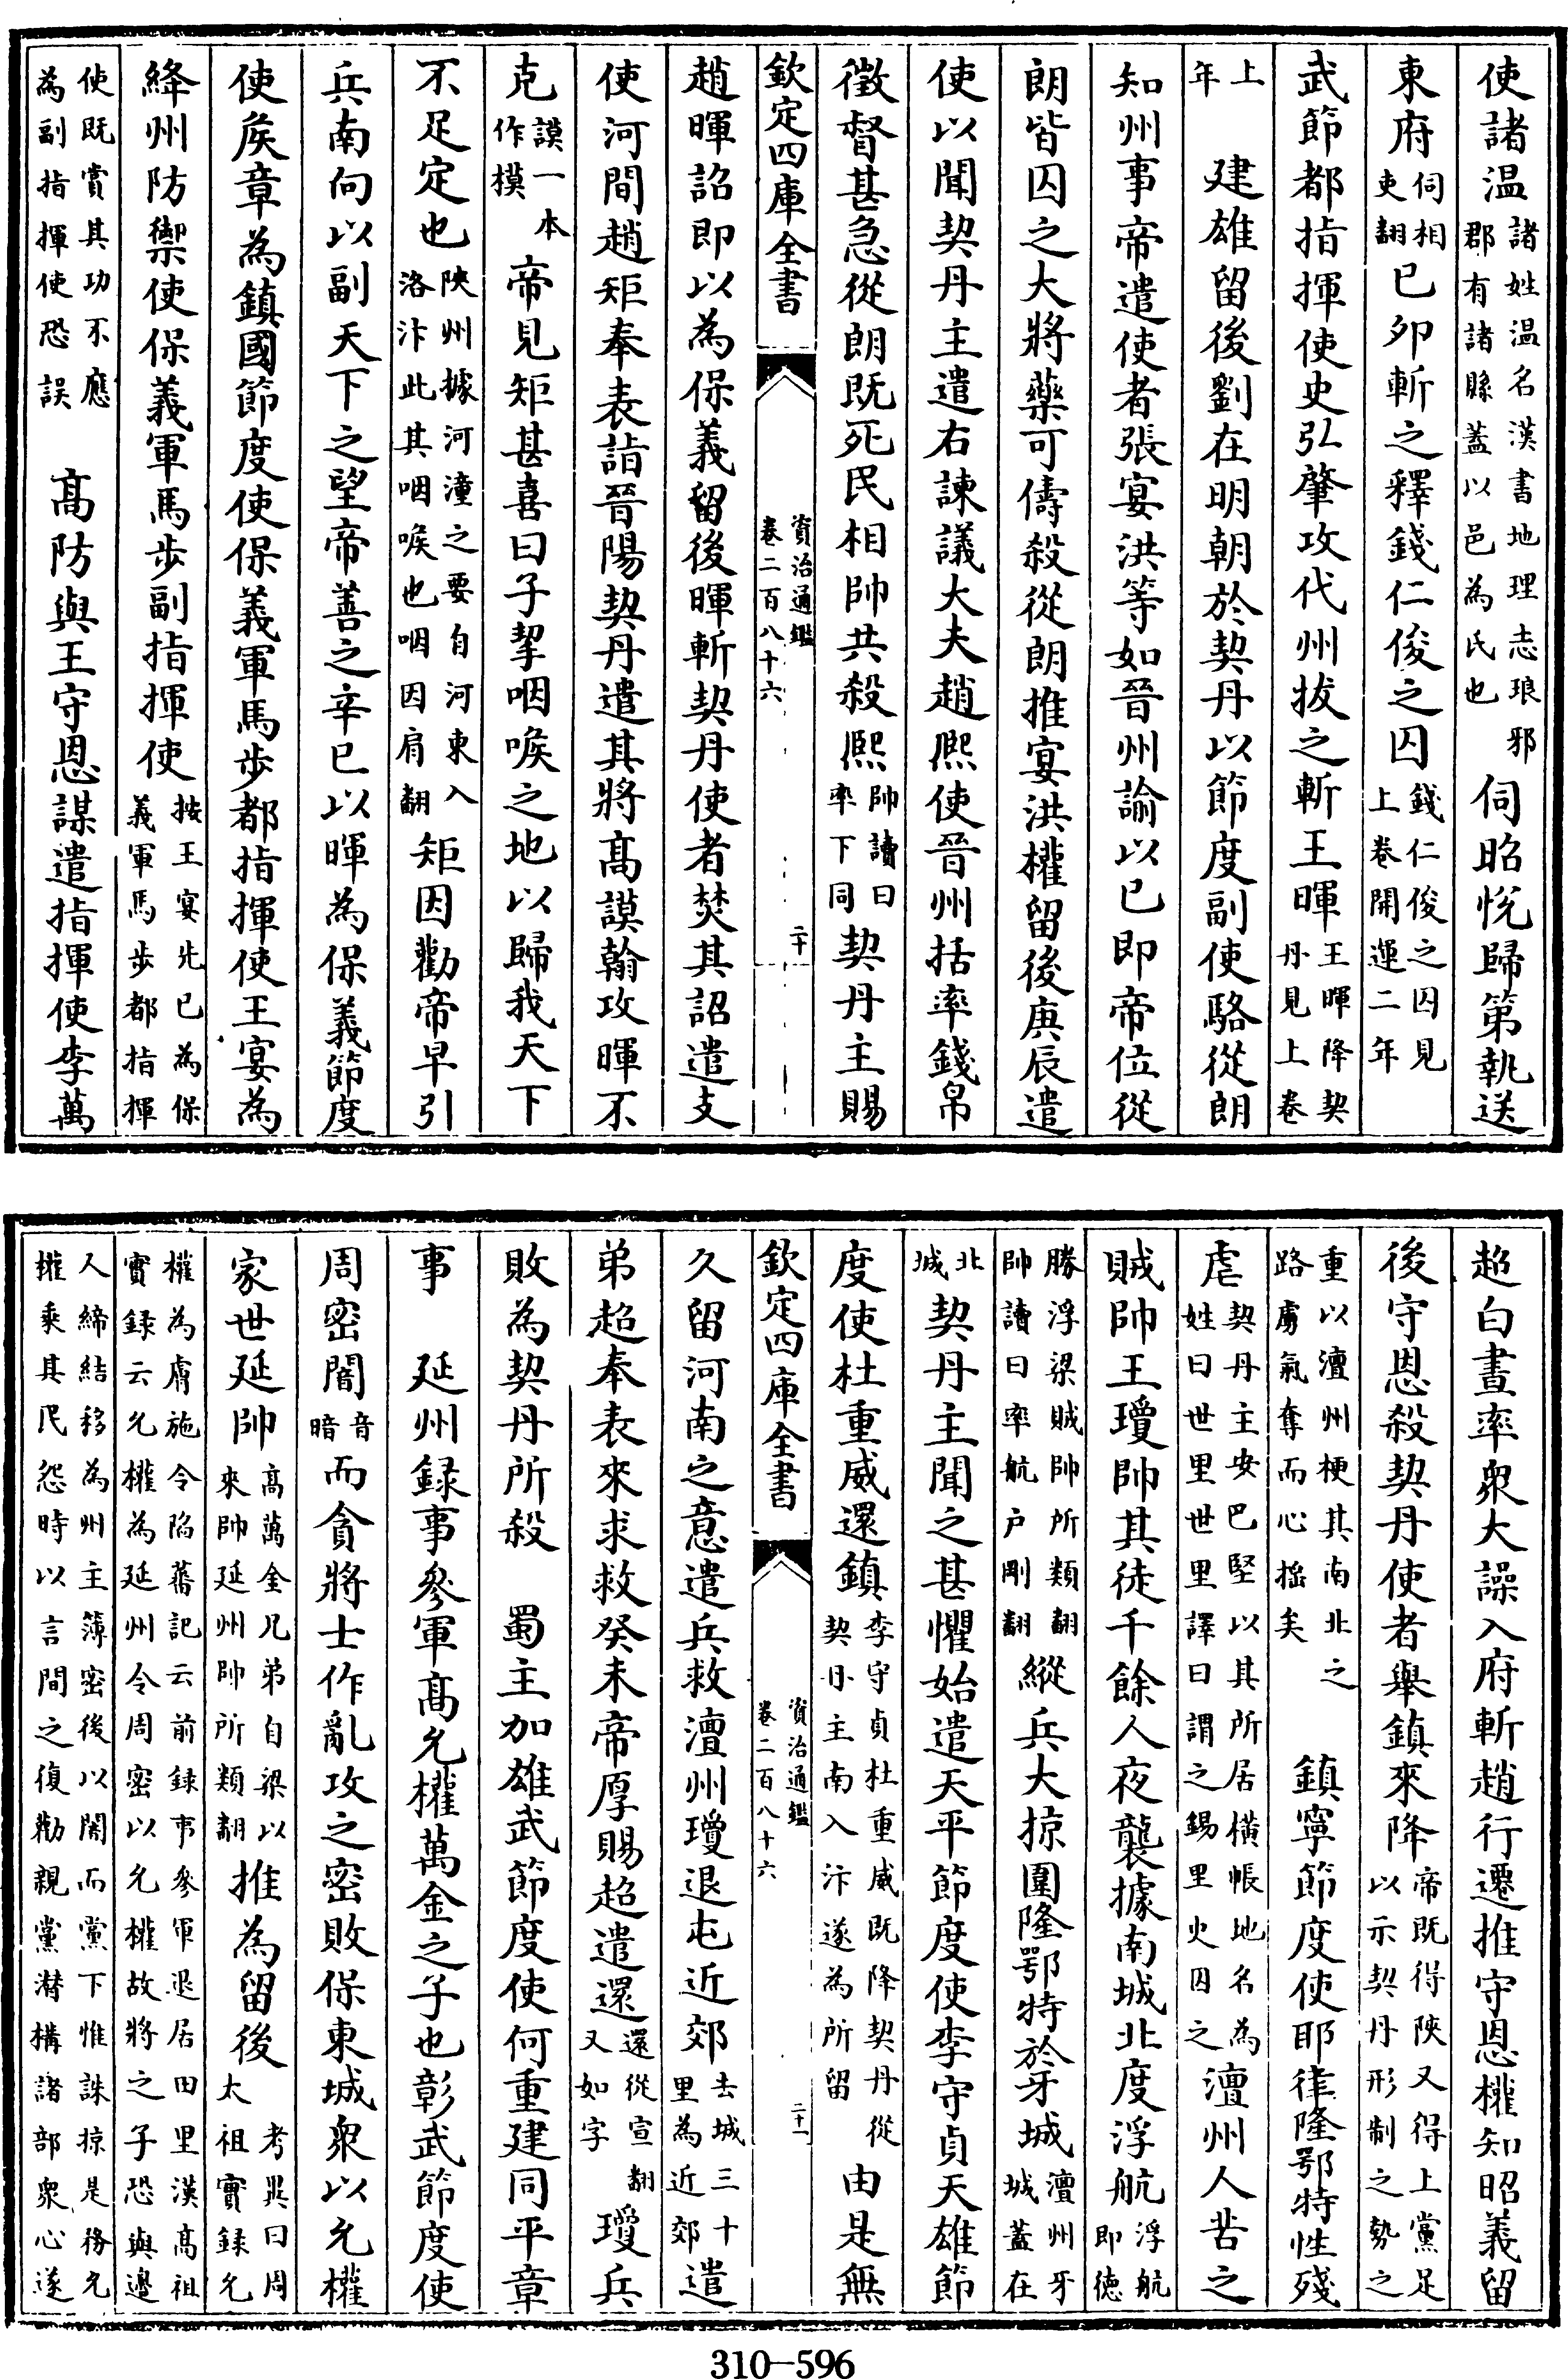 使諸温諸姓温名漢書地理志琅邪郡有諸縣蓋以邑為氏也伺昭悦歸第執送
東府伺相吏翻已卯斬之釋錢仁俊之囚錢仁俊之囚見上卷開運二年
武節都指揮使史弘肇攻代州拔之斬王暉王暉降契丹見上卷
上年　建雄留後劉在明朝於契丹以節度副使駱從朗
知州事帝遣使者張宴洪等如晉州諭以已即帝位從
朗皆囚之大將藥可儔殺從朗推宴洪權留後庚辰遣
使以聞契丹主遣右諫議大夫趙熈使晉州括率錢帛
徵督甚急從朗既死民相帥共殺熈帥讀曰率下同契丹主賜
欽定四庫全書　資治通鑑卷二百八十六　二十
趙暉詔即以為保義留後暉斬契丹使者焚其詔遣支
使河間趙矩奉表詣晉陽契丹遣其將高謨翰攻暉不
克謨一本作模帝見矩甚喜曰子挈咽喉之地以歸我天下
不足定也陜州據河潼之要自河東入洛汴此其咽喉也咽因肩翻矩因勸帝早引
兵南向以副天下之望帝善之辛巳以暉為保義節度
使矦章為鎮國節度使保義軍馬步都指揮使王宴為
絳州防禦使保義軍馬步副指揮使按王宴先已為保義軍馬步都指揮
使既賞其功不應為副指揮使恐誤　高防與王守恩謀遣指揮使李萬
超白晝率衆大譟入府斬趙行遷推守恩權知昭義留
後守恩殺契丹使者舉鎮來降帝既得陜又得上黨足以示契丹形制之勢之
重以澶州梗其南北之路虜氣奪而心搖矣　鎮寧節度使耶律隆鄂特性殘
虐契丹主安巴堅以其所居橫帳地名為姓曰世里世里譯曰謂之錫里火囚之澶州人苦之
賊帥王瓊帥其徒千餘人夜襲據南城北度浮航浮航即徳
勝浮梁賊帥所類翻帥讀曰率航户剛翻縱兵大掠圍隆鄂特於牙城澶州牙城蓋在
北城契丹主聞之甚懼始遣天平節度使李守貞天雄節
度使杜重威還鎮李守貞杜重威既降契丹從契丹主南入汴遂為所留由是無
欽定四庫全書　資治通鑑卷二百八十六　二十一
久留河南之意遣兵救澶州瓊退屯近郊去城三十里為近郊遣
弟超奉表來求救癸未帝厚賜超遣還還從宣翻又如字瓊兵
敗為契丹所殺　蜀主加雄武節度使何重建同平章
事　延州録事參軍高允權萬金之子也彰武節度使
周密闇音暗而貪將士作亂攻之密敗保東城衆以允權
家世延帥高萬金兄弟自梁以來帥延州帥所類翻推為留後考異曰周太祖實録允
權為膚施令陷蕃記云前録事參軍退居田里漢高祖實録云允權為延州令周密以允權故將之子恐與邉
人締結移為州主簿密後以闇而黨下惟誅掠是務允權乘其民怨時以言間之復勸親黨潜構諸部衆心遂
310-596